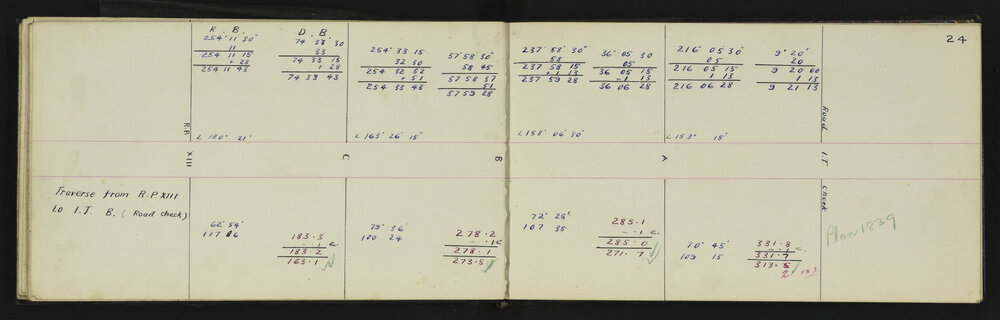 24
R. B.
254° 11' 30"
11
254 11 15
+ 28
254 11 43
D. B.
74 33 30
33
74 33 15
+ 28
74 33 43
254 33 15
32 30
254 32 52
+ 51
254 33 43
57° 58' 30"
58 45
57 58 37
51
57 59 28
237° 58' 30"
58
237 58 15
+ 1 13
237 59 28
36° 05 30
05
36 05 15
- 1 13
36 06 28
216° 05' 30"
05
216 05 15
1 13
216 06 28
9° 20'
20
9 20 00
1 13
9 21 13
∠ 180° 21'
∠ 163° 26' 15"
∠ 158° 06' 30"
∠ 153° 15'
R.P. XIII
C
B
A
Road I.T. check
Traverse from R.P. XIII
to I.T. B. (Road check)
62° 54'
117 06
183.3
- .1 c.
183.2
163.1
79° 36'
100 24
278.2
- .1c
278.1
273.5
72° 25'
107 35
285.1
- .1 c.
285.0
271.7
70° 45'
109 15
331.8
- .1 c.
331.7
313.5
2
Plan 1839